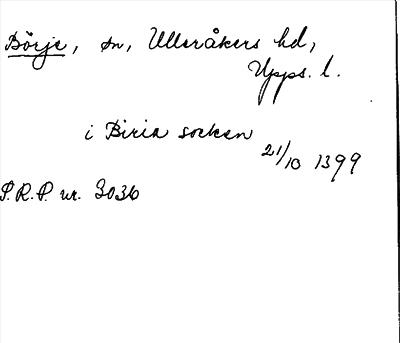 Börje, sn, Ulleråkers hd,
Upps. l.
i Biria socken
21/10 1399
S.R.P. nr. 3036